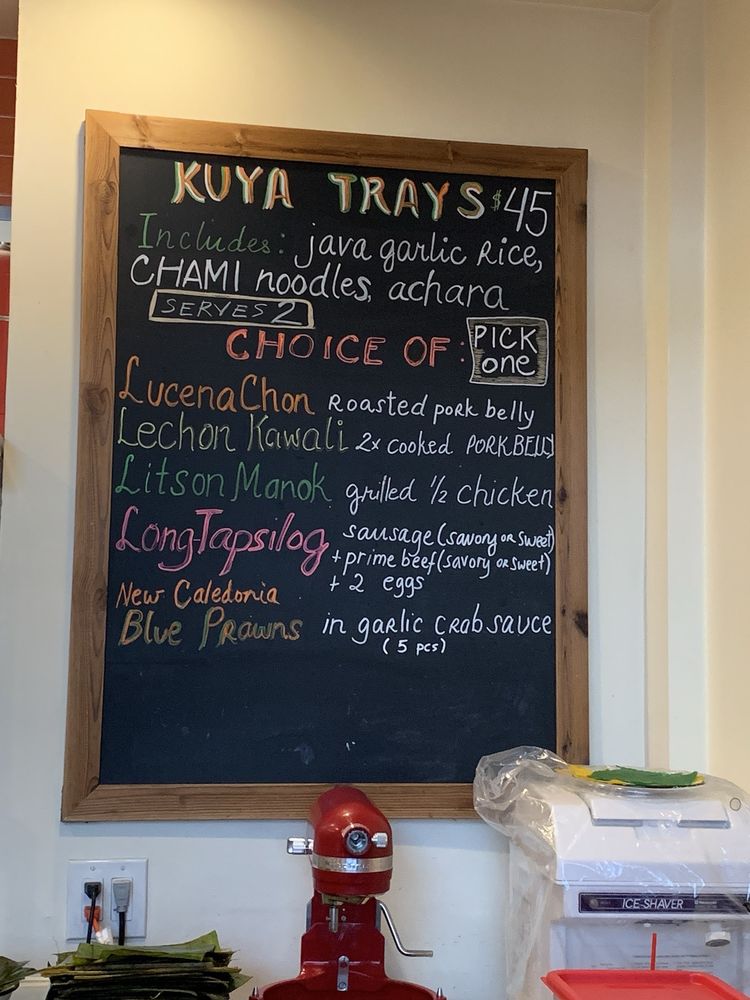 KUYA TRAYS $45
Includes: java garlic Rice,
CHAMI noodles, achara
SERVES 2
CHOICE OF: PICK one
LucenaChon Roasted pork belly
Lechon Kawali 2x cooked PORK BELLY
Litson Manok grilled 1/2 chicken
LongTapsilog sausage (savory or sweet)
+ prime beef (savory or sweet)
+ 2 eggs
New Caledonia
Blue Prawns in garlic crab sauce
(5 pcs)
ICE SHAVER